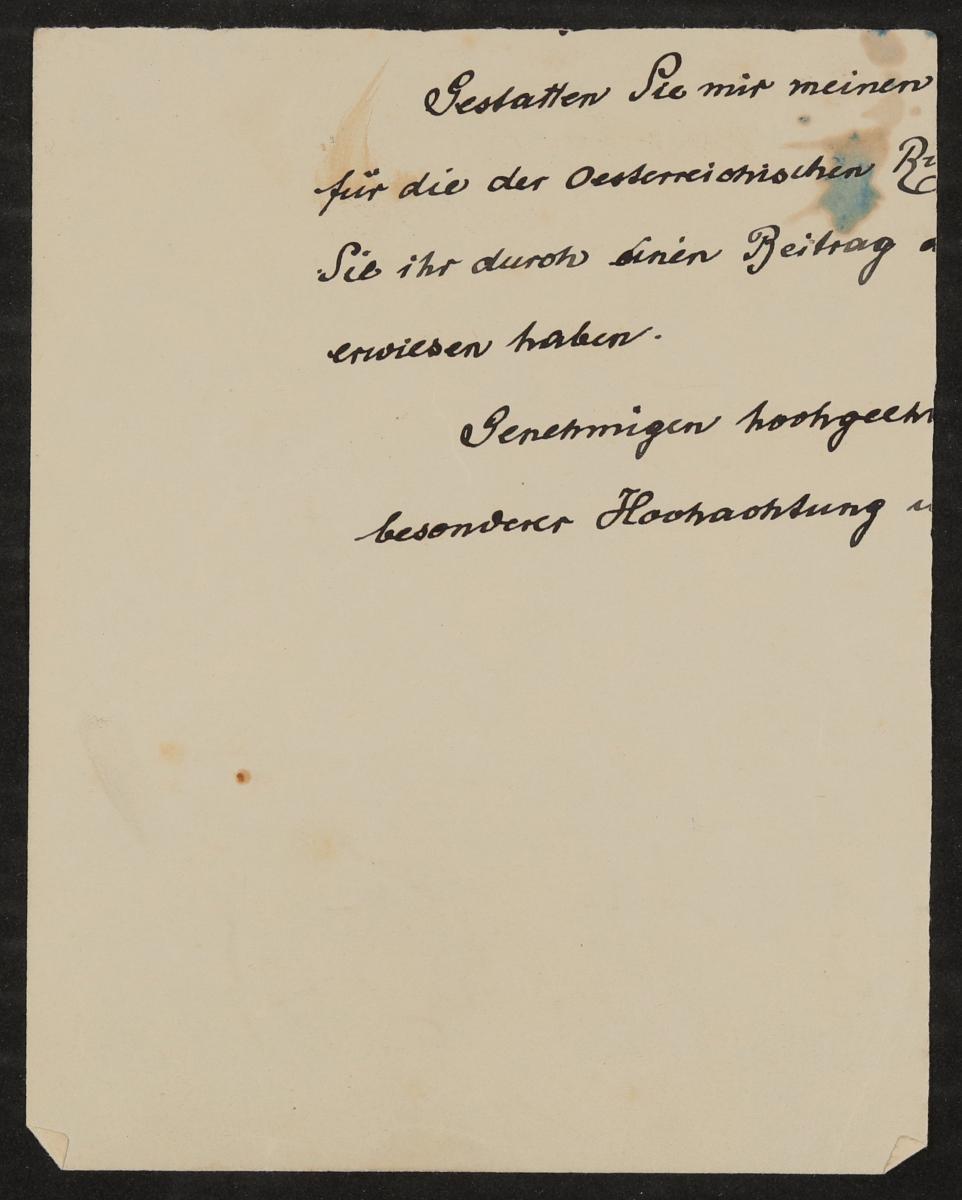 Gestatten Sie mir meinen
für die der Oesterreichischen
Sie ihr durch einen Beitrag
erwiesen haben.
Genehmigen hochgeehr
besonderer Hochachtung u